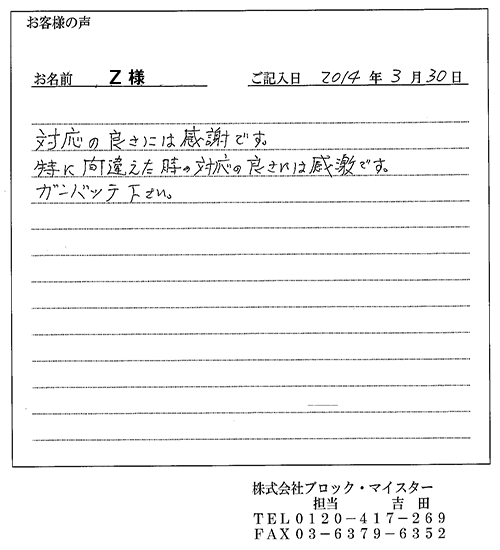 お客様の声
お名前 Z 様 ご記入日 2014 年 3 月 30 日
対応の良さには感謝です。
特に間違えた時の対応の良さには感激です。
ガンバッテ下さい。
株式会社ブロック・マイスター
担当 吉田
TEL0120-417-269
FAX03-6379-6352